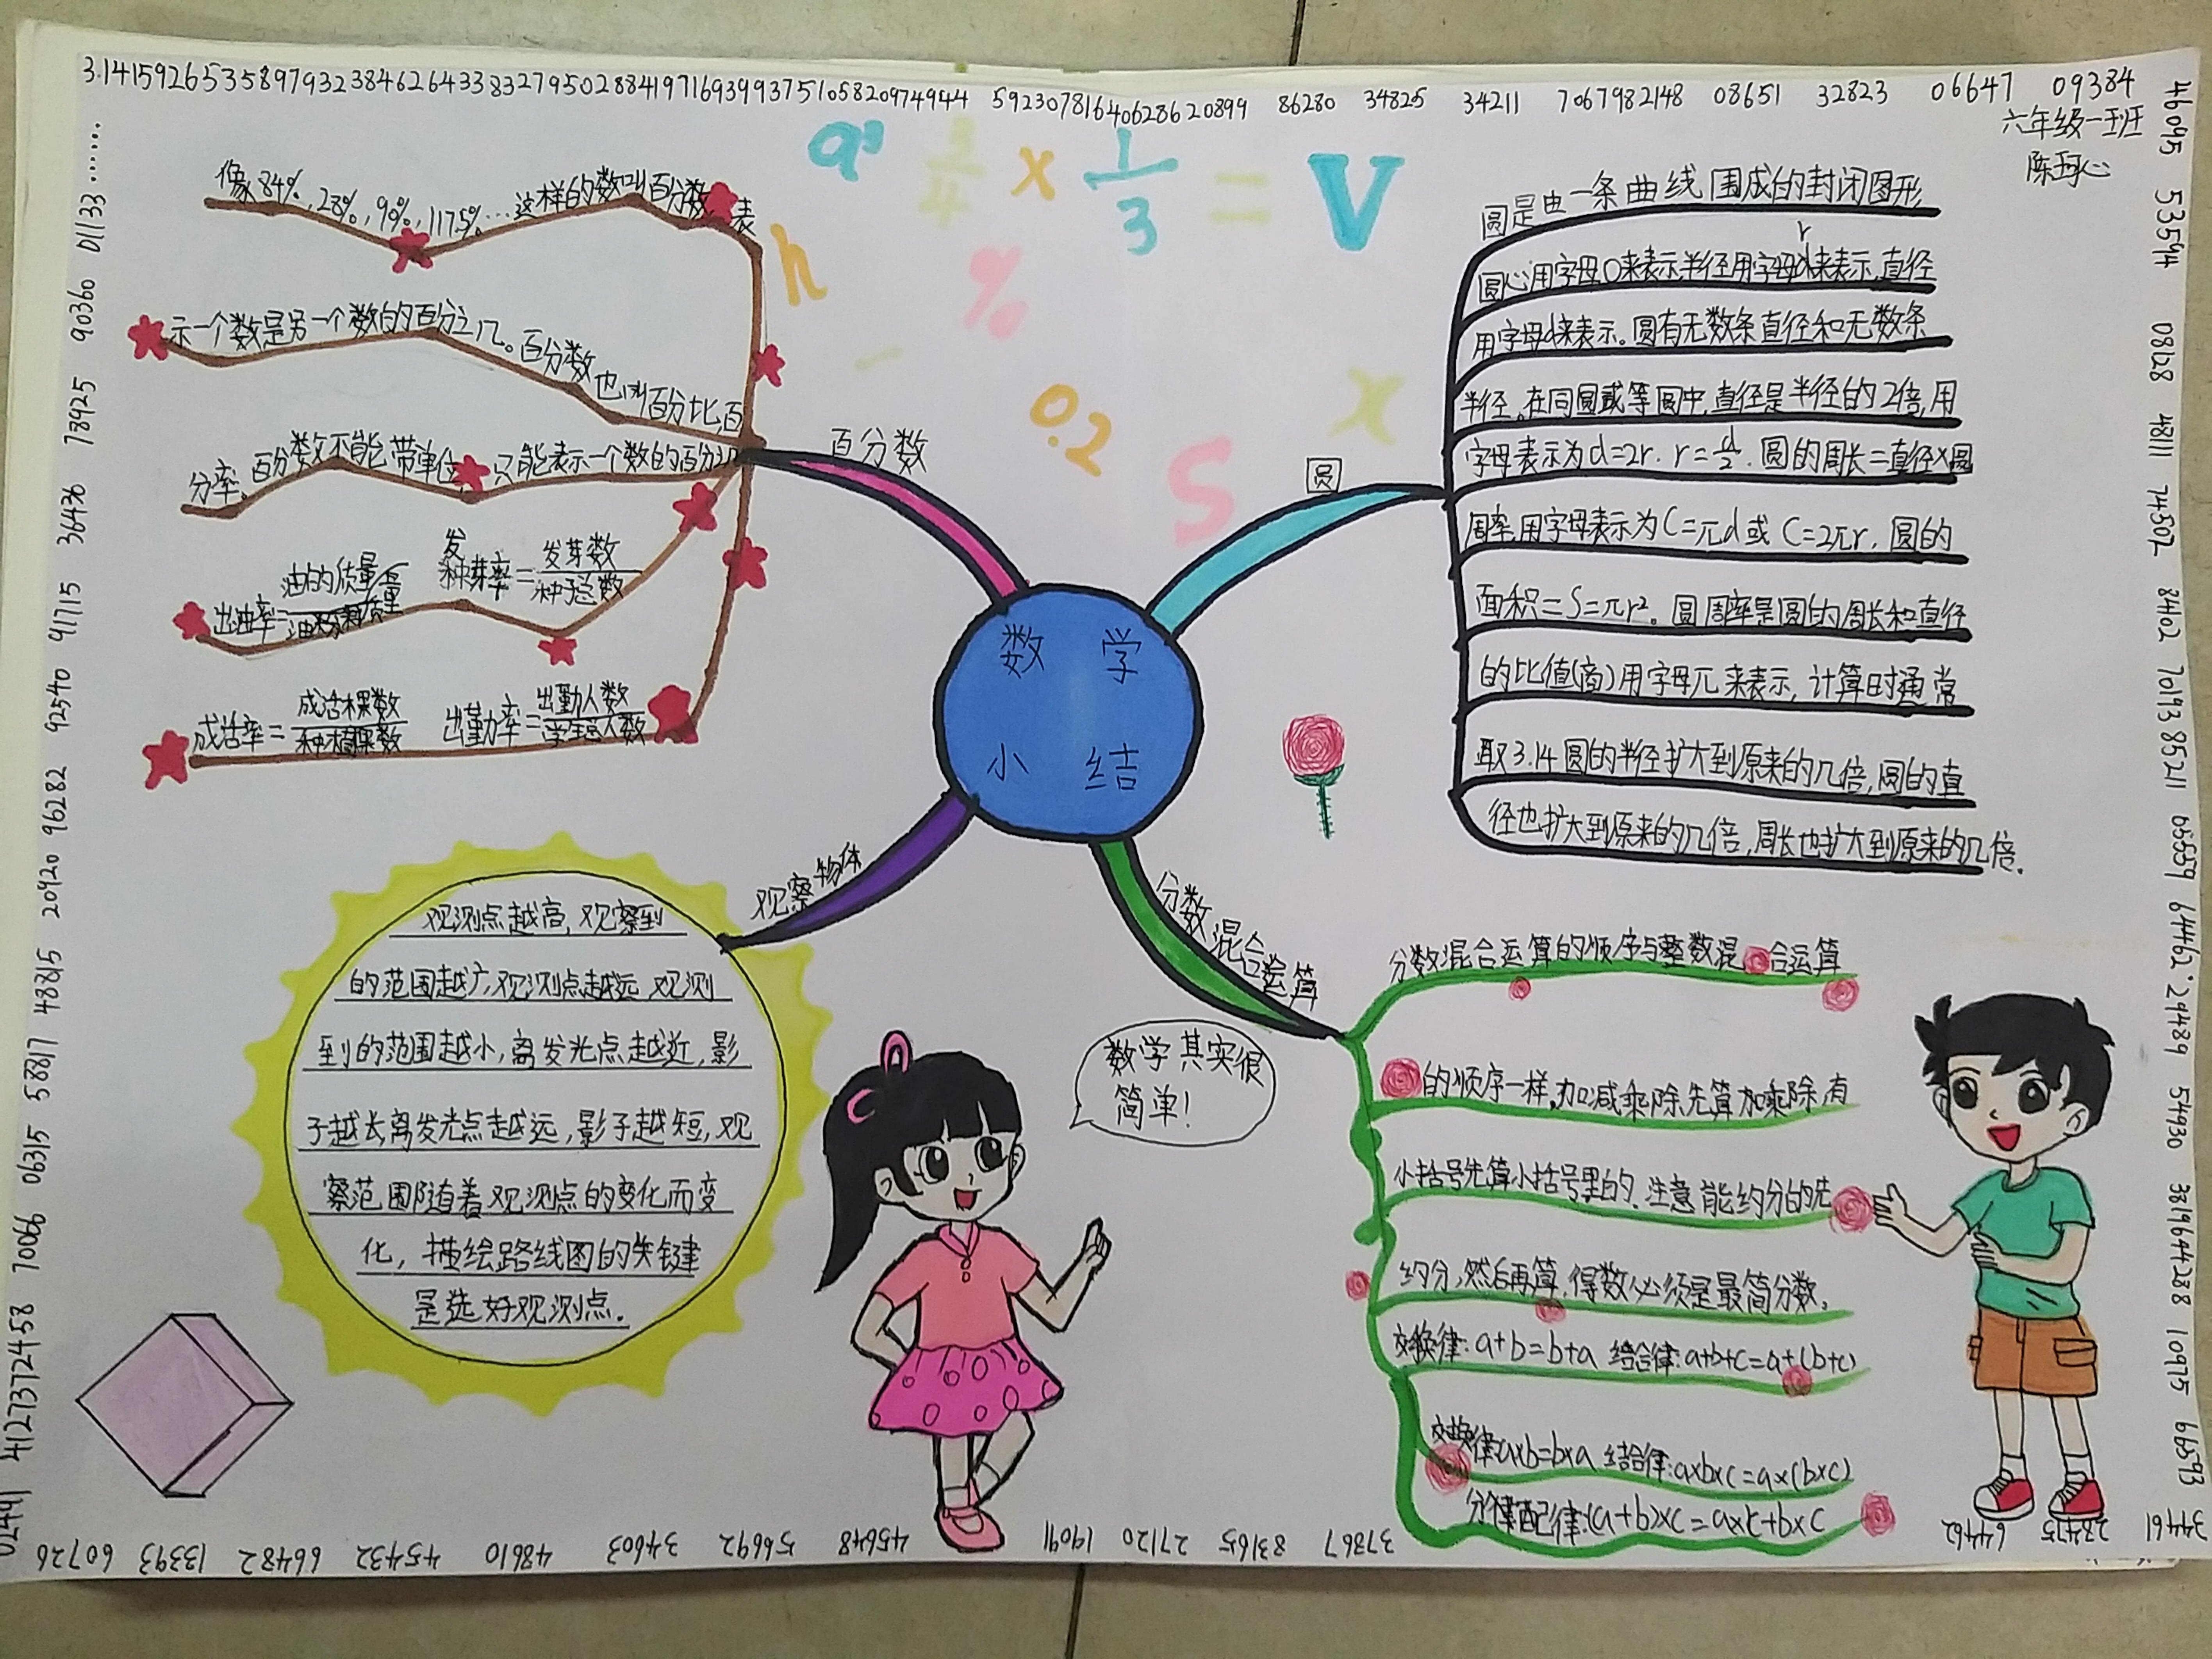 3.14159265358979323846264338327950288419716939937510582097494459230781640628620899 86280 34825 34211 7067982148 08651 32823 06647 09384
46095 53594 08128 48111 74502 8402 70193 85211 05559 64462 29489 54930 38196 44288 10975 66593
34461 28475 64462 37867 83165 27120 19091 45648 56692 34603 48610 45432 66482 13393 60726
02491 4127372458 70066 06315 58817 48815 20920 96282 92540 91715 36436 78925 90360 01133……
六年级一班
陈珂心
a³ 3/4 × 1/3 = V
h % - 0.2 x S
数学
小结
百分数
像84%,28%,90%,117.5%…这样的数叫百分数表
示一个数是另一个数的百分之几。百分数也叫百分比,百
分率。百分数不能带单位,只能表示一个数的百分之几
出油率=油的质量/
发芽率=发芽数/种子总数
成活率=成活棵数/种植棵数 出勤率=出勤人数/学生总人数
圆
圆是由一条曲线围成的封闭图形
圆心用字母O来表示半径用字母r来表示,直径
用字母d来表示。圆有无数条直径和无数条
半径。在同圆或等圆中,直径是半径的2倍,用
字母表示为d=2r. r=d/2. 圆的周长=直径×圆
周率,用字母表示为C=πd或 C=2πr. 圆的
面积=S=πr²。圆周率是圆的周长和直径
的比值(商)用字母π来表示,计算时通常
取3.14圆的半径扩大到原来的几倍,圆的直
径也扩大到原来的几倍,周长也扩大到原来的几倍.
观察物体
观测点越高,观察到
的范围越广,观测点越远,观测
到的范围越小,离发光点越近,影
子越长离发光点越远,影子越短,观
察范围随着观测点的变化而变
化,描绘路线图的关键
是选好观测点。
数学其实很
简单!
分数混合运算
分数混合运算的顺序与整数混合运算
的顺序一样。加减乘除,先算加乘除,有
小括号先算小括号里的.注意能约分的先
约分,然后再算.得数必须是最简分数。
交换律:a+b=b+a 结合律:a+b+c=a+(b+c)
交换律:a×b=b×a 结合律:a×b×c=a×(b×c)
分配律:(a+b)×c=a×c+b×c